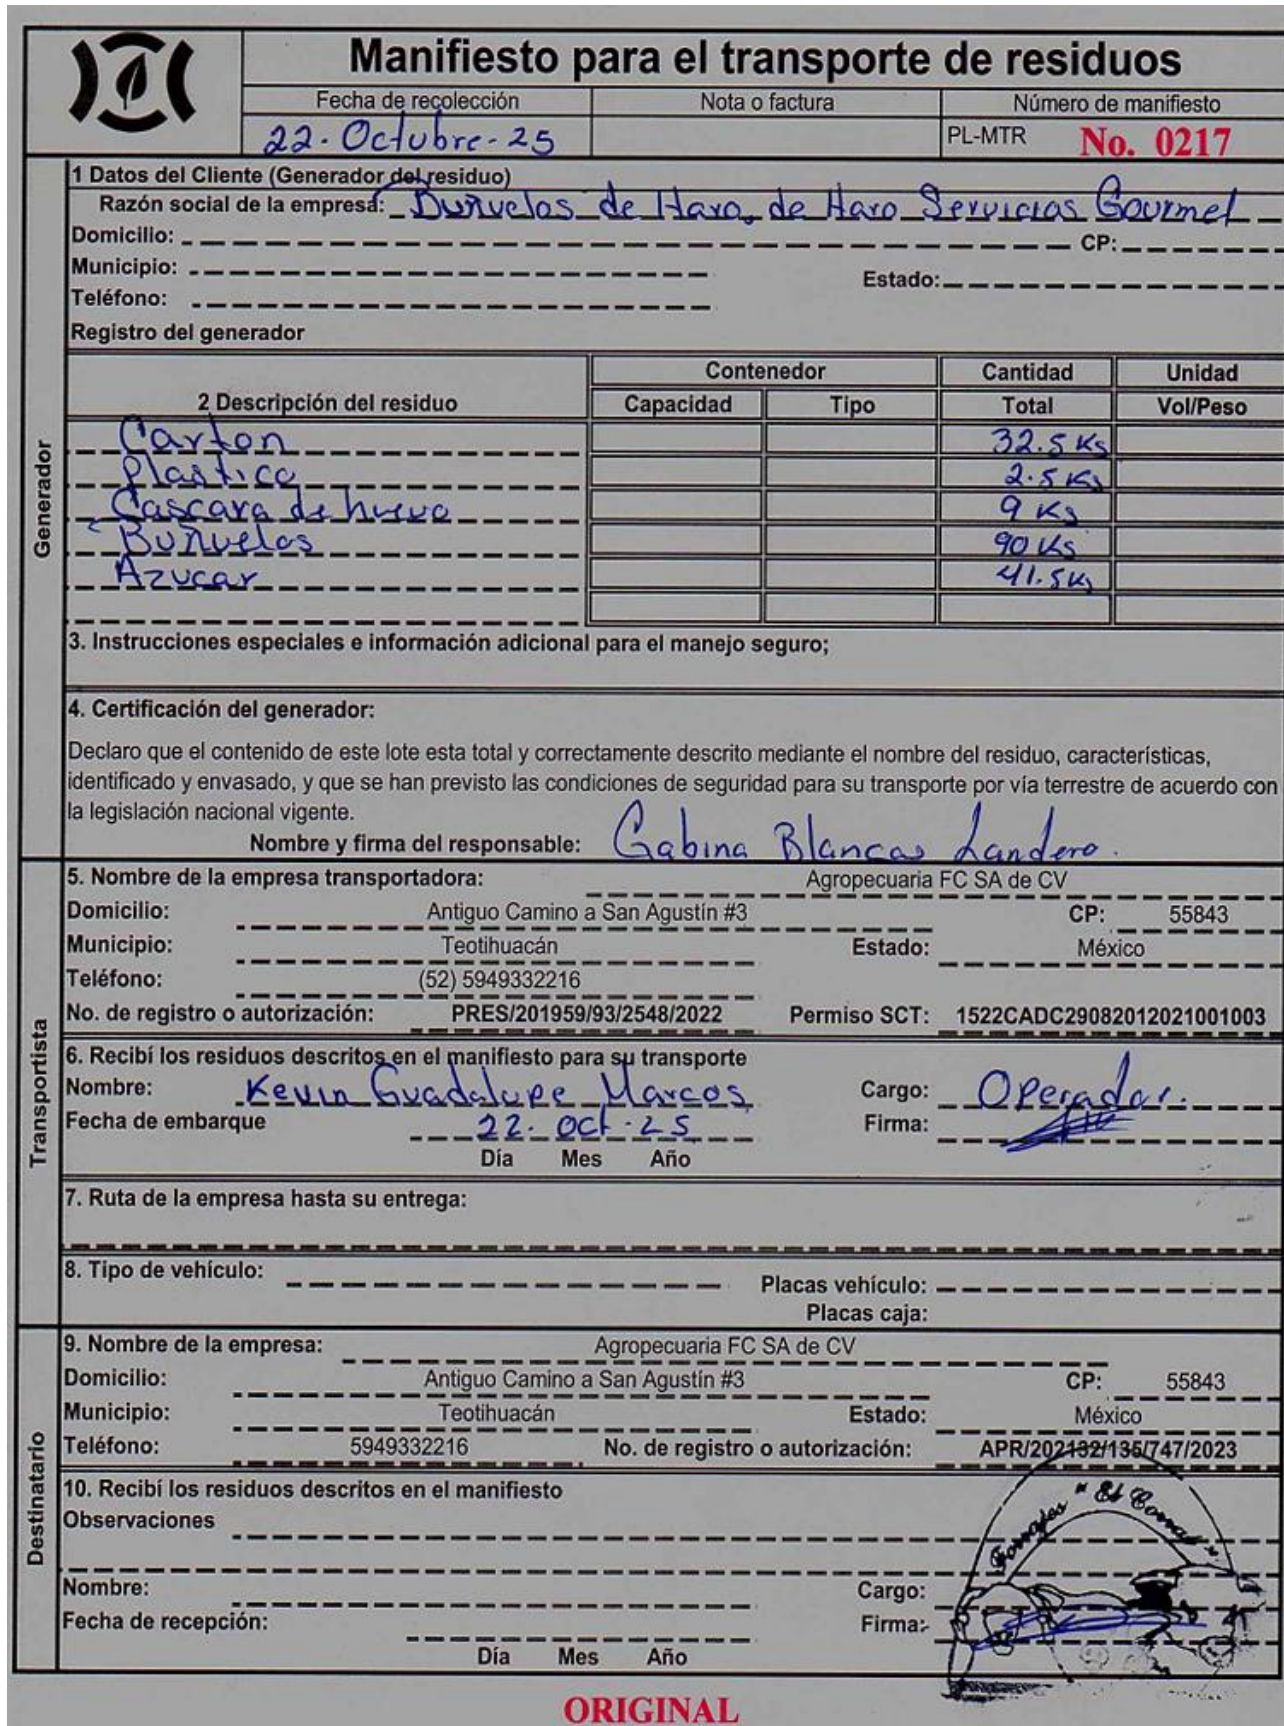 Manifiesto para el transporte de residuos
Fecha de recolección Nota o factura Número de manifiesto
22. Octubre-25 PL-MTR No. 0217
1 Datos del Cliente (Generador del residuo)
Razón social de la empresa: Buñuelos de Haro, de Haro Servicios Gourmet
Domicilio: CP:
Municipio: Estado:
Teléfono:
Registro del generador
Contenedor Cantidad Unidad
2 Descripción del residuo Capacidad Tipo Total Vol/Peso
Carton 32.5 Ks
Plastico 2.5 Ks
Cascara de huevo 9 Ks
Buñuelos 90 Ks
Azucar 41.5 Ks
Generador
3. Instrucciones especiales e información adicional para el manejo seguro;
4. Certificación del generador:
Declaro que el contenido de este lote esta total y correctamente descrito mediante el nombre del residuo, características,
identificado y envasado, y que se han previsto las condiciones de seguridad para su transporte por vía terrestre de acuerdo con
la legislación nacional vigente.
Nombre y firma del responsable: Gabina Blancas Landero.
5. Nombre de la empresa transportadora: Agropecuaria FC SA de CV
Domicilio: Antiguo Camino a San Agustín #3 CP: 55843
Municipio: Teotihuacán Estado: México
Teléfono: (52) 5949332216
No. de registro o autorización: PRES/201959/93/2548/2022 Permiso SCT: 1522CADC29082012021001003
Transportista
6. Recibí los residuos descritos en el manifiesto para su transporte
Nombre: Kevin Guadalupe Marcos Cargo: Operador.
Fecha de embarque 22. Oct. 25 Firma:
Día Mes Año
7. Ruta de la empresa hasta su entrega:
8. Tipo de vehículo: Placas vehículo:
Placas caja:
9. Nombre de la empresa: Agropecuaria FC SA de CV
Domicilio: Antiguo Camino a San Agustín #3 CP: 55843
Municipio: Teotihuacán Estado: México
Teléfono: 5949332216 No. de registro o autorización: APR/202132/135/747/2023
Destinatario
10. Recibí los residuos descritos en el manifiesto
Observaciones
Forrajes "El Corral"
Nombre: Cargo:
Fecha de recepción: Firma:
Día Mes Año
ORIGINAL